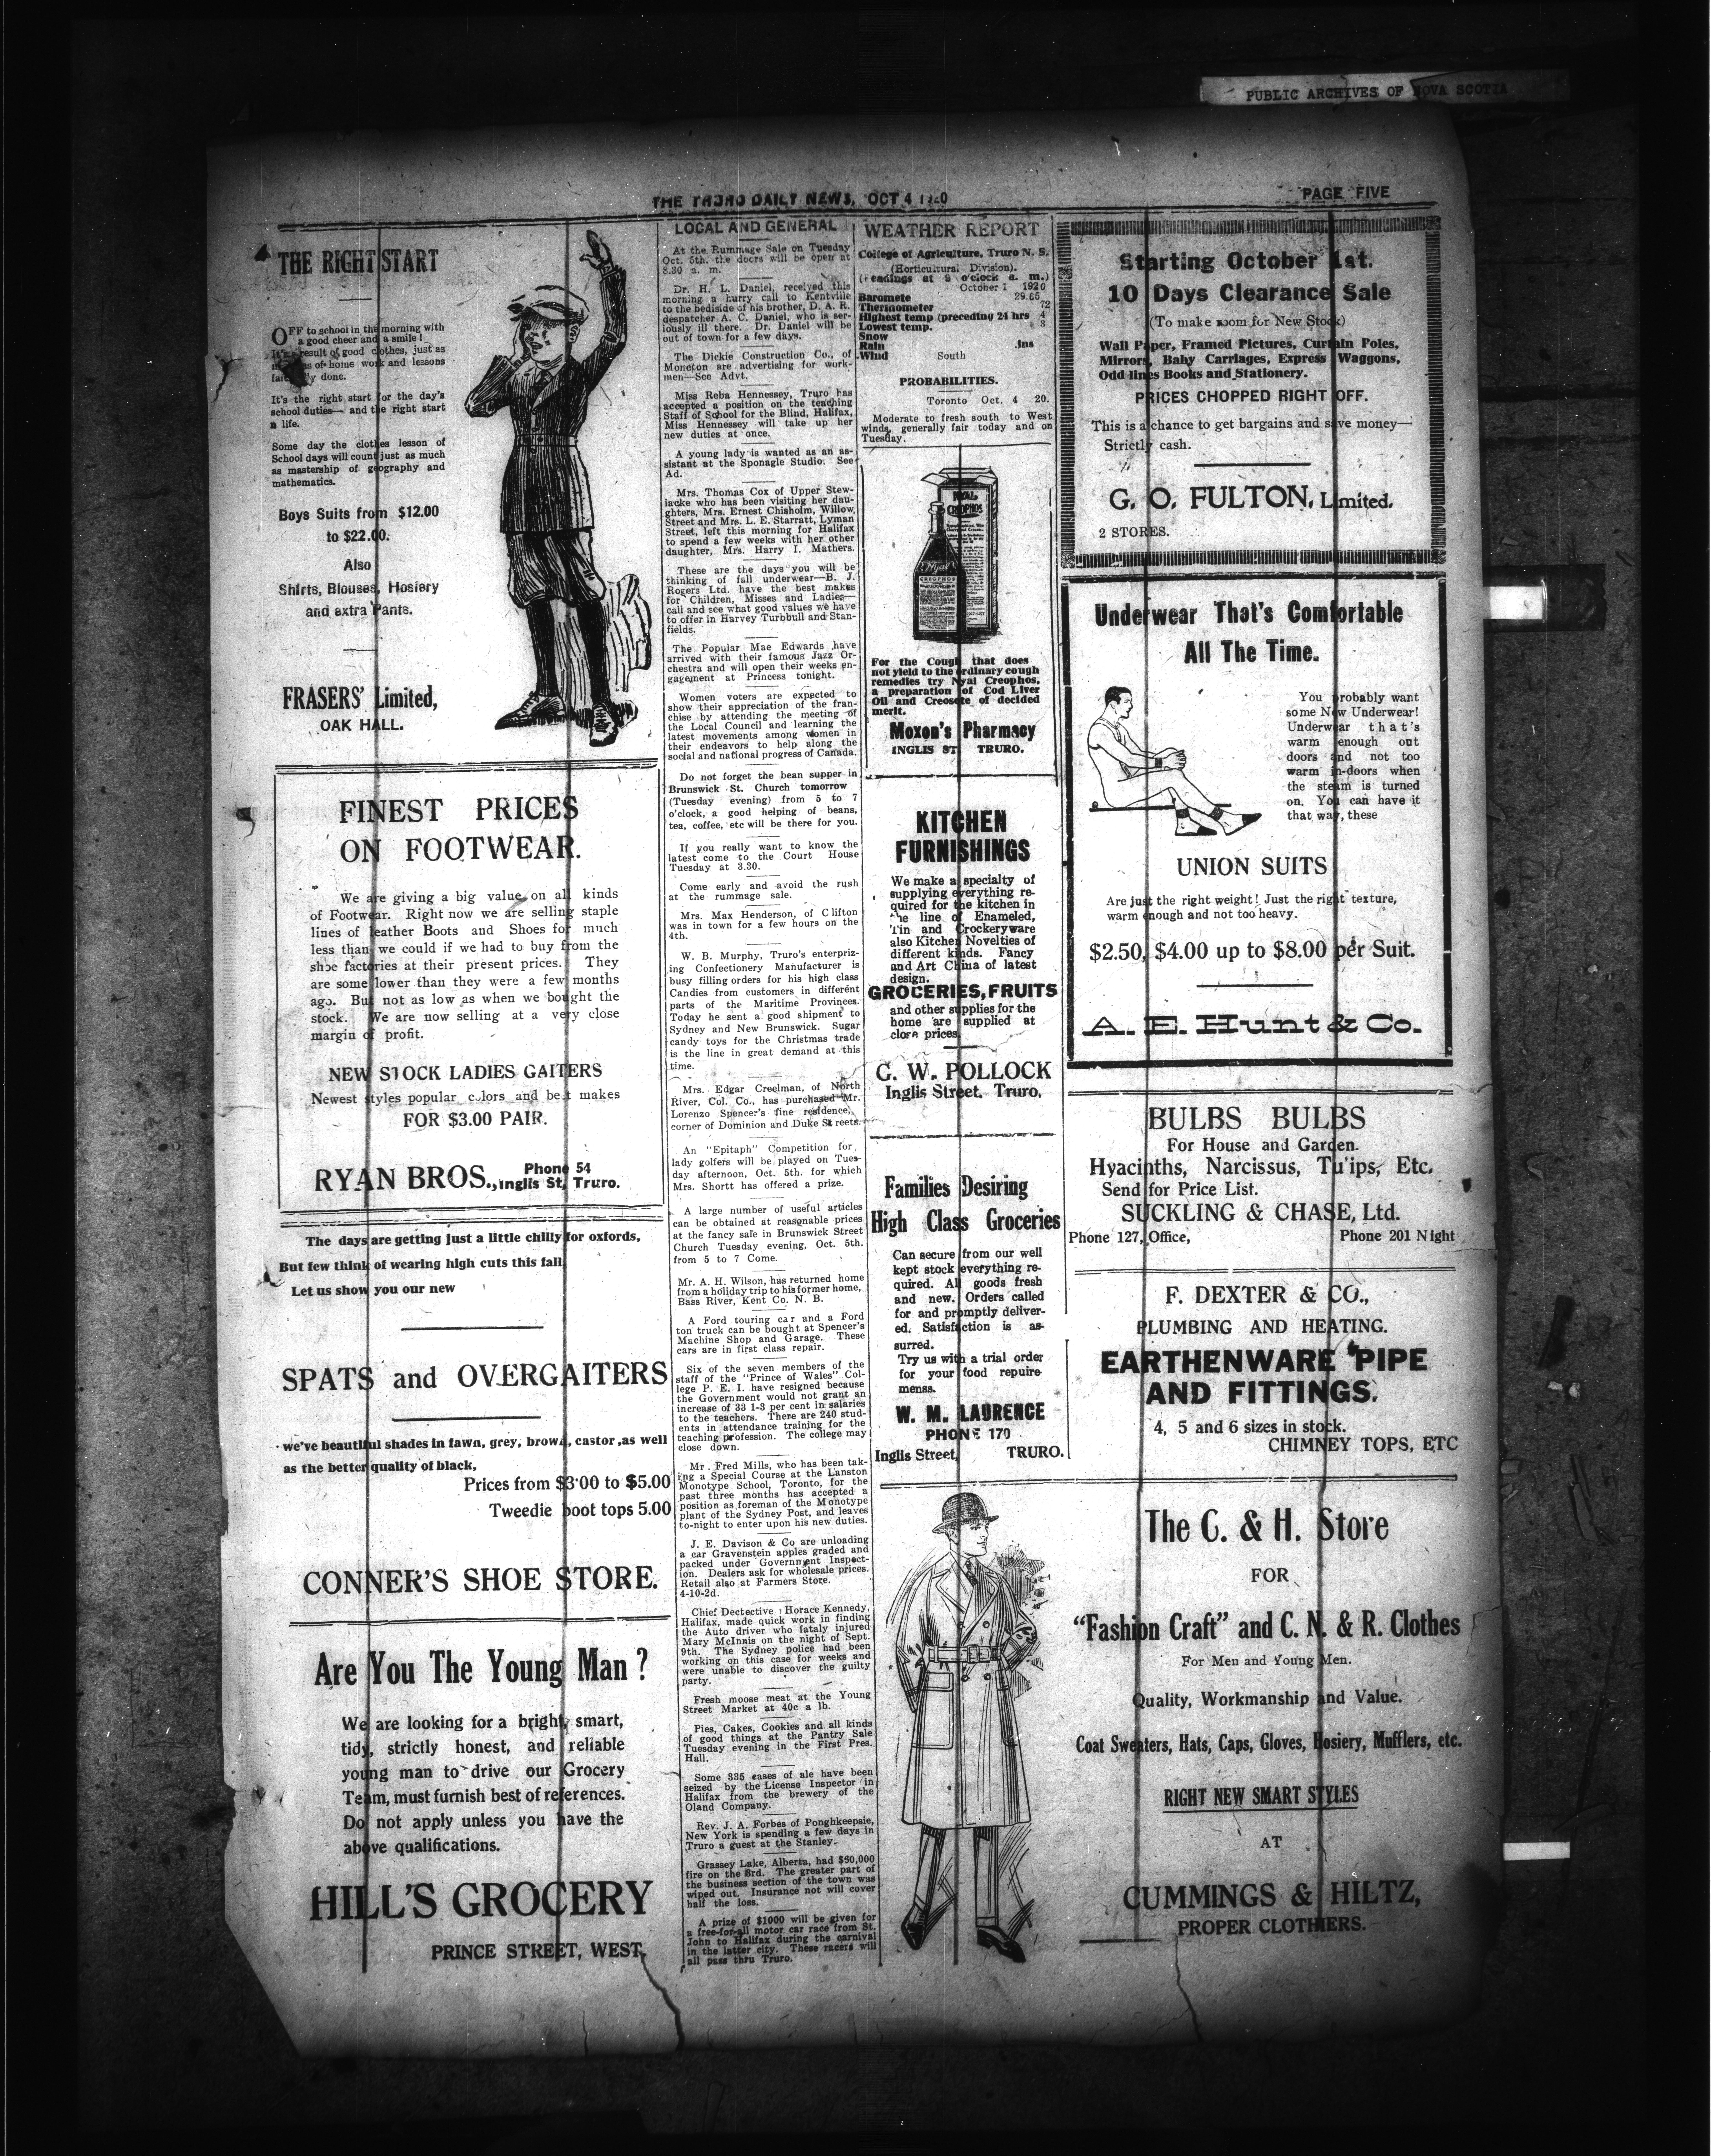 PUBLIC ARCHIVES OF NOVA SCOTIA
THE TRURO DAILY NEWS, OCT 4 1920
PAGE FIVE
THE RIGHT START
OFF to school in the morning with
a good cheer and a smile!
It's result of good clothes, just as
of home work and lessons
done.
It's the right start for the day's
school duties—and the right start
a life.
Some day the clothes lesson of
School days will count just as much
as mastership of geography and
mathematics.
Boys Suits from $12.00
to $22.00.
Also
Shirts, Blouses, Hosiery
and extra Pants.
FRASERS' Limited,
OAK HALL.
FINEST PRICES
ON FOOTWEAR.
We are giving a big value on all kinds
of Footwear. Right now we are selling staple
lines of leather Boots and Shoes for much
less than we could if we had to buy from the
shoe factories at their present prices. They
are some lower than they were a few months
ago. But not as low as when we bought the
stock. We are now selling at a very close
margin of profit.
NEW STOCK LADIES GAITERS
Newest styles popular colors and best makes
FOR $3.00 PAIR.
RYAN BROS., Phone 54
Inglis St, Truro.
The days are getting just a little chilly for oxfords,
But few think of wearing high cuts this fall
Let us show you our new
SPATS and OVERGAITERS
we've beautiful shades in fawn, grey, brown, castor ,as well
as the better quality of black,
Prices from $3.00 to $5.00
Tweedie boot tops 5.00
CONNER'S SHOE STORE.
Are You The Young Man ?
We are looking for a bright, smart,
tidy, strictly honest, and reliable
young man to drive our Grocery
Team, must furnish best of references.
Do not apply unless you have the
above qualifications.
HILL'S GROCERY
PRINCE STREET, WEST,
LOCAL AND GENERAL
At the Rummage Sale on Tuesday
Oct. 5th. the doors will be open at
8.30 a. m.
Dr. H. L. Daniel, received this
morning a hurry call to Kentville
to the bedside of his brother, D. A. R.
despatcher A. C. Daniel, who is ser-
iously ill there. Dr. Daniel will be
out of town for a few days.
The Dickie Construction Co., of
Moncton are advertising for work-
men—See Advt.
Miss Reba Hennessey, Truro has
accepted a position on the teaching
Staff of School for the Blind, Halifax,
Miss Hennessey will take up her
new duties at once.
A young lady is wanted as an as-
sistant at the Sponagle Studio. See
Ad.
Mrs. Thomas Cox of Upper Stew-
iacke who has been visiting her dau-
ghters, Mrs. Ernest Chisholm, Willow
Street and Mrs. L. E. Starratt, Lyman
Street, left this morning for Halifax
to spend a few weeks with her other
daughter, Mrs. Harry I. Mathers.
These are the days you will be
thinking of fall underwear—B. J.
Rogers Ltd. have the best makes
for Children, Misses and Ladies—
call and see what good values we have
to offer in Harvey Turbbull and Stan-
fields.
The Popular Mae Edwards have
arrived with their famous Jazz Or-
chestra and will open their weeks en-
gagement at Princess tonight.
Women voters are expected to
show their appreciation of the fran-
chise by attending the meeting of
the Local Council and learning the
latest movements among women in
their endeavors to help along the
social and national progress of Canada.
Do not forget the bean supper in
Brunswick St. Church tomorrow
(Tuesday evening) from 5 to 7
o'clock, a good helping of beans,
tea, coffee, etc will be there for you.
If you really want to know the
latest come to the Court House
Tuesday at 3.30.
Come early and avoid the rush
at the rummage sale.
Mrs. Max Henderson, of Clifton
was in town for a few hours on the
4th.
W. B. Murphy, Truro's enterpriz-
ing Confectionery Manufacturer is
busy filling orders for his high class
Candies from customers in different
parts of the Maritime Provinces.
Today he sent a good shipment to
Sydney and New Brunswick. Sugar
candy toys for the Christmas trade
is the line in great demand at this
time.
Mrs. Edgar Creelman, of North
River, Col. Co., has purchased Mr.
Lorenzo Spencer's fine residence,
corner of Dominion and Duke Streets.
An "Epitaph" Competition for
lady golfers will be played on Tues-
day afternoon, Oct. 5th. for which
Mrs. Shortt has offered a prize.
A large number of useful articles
can be obtained at reasonable prices
at the fancy sale in Brunswick Street
Church Tuesday evening, Oct. 5th.
from 5 to 7 Come.
Mr. A. H. Wilson, has returned home
from a holiday trip to his former home,
Bass River, Kent Co. N. B.
A Ford touring car and a Ford
ton truck can be bought at Spencer's
Machine Shop and Garage. These
cars are in first class repair.
Six of the seven members of the
staff of the "Prince of Wales" Col-
lege P. E. I. have resigned because
the Government would not grant an
increase of 33 1-3 per cent in salaries
to the teachers. There are 240 stud-
ents in attendance training for the
teaching profession. The college may
close down.
Mr. Fred Mills, who has been tak-
ing a Special Course at the Lanston
Monotype School, Toronto, for the
past three months has accepted a
position as foreman of the Monotype
plant of the Sydney Post, and leaves
to-night to enter upon his new duties.
J. E. Davison & Co are unloading
a car Gravenstein apples graded and
packed under Government Inspect-
ion. Dealers ask for wholesale prices.
Retail also at Farmers Store.
4-10-2d.
Chief Dectective Horace Kennedy,
Halifax, made quick work in finding
the Auto driver who fataly injured
Mary McInnis on the night of Sept.
9th. The Sydney police had been
working on this case for weeks and
were unable to discover the guilty
party.
Fresh moose meat at the Young
Street Market at 40c a lb.
Pies, Cakes, Cookies and all kinds
of good things at the Pantry Sale
Tuesday evening in the First Pres.
Hall.
Some 335 cases of ale have been
seized by the License Inspector in
Halifax from the brewery of the
Oland Company.
Rev. J. A. Forbes of Ponghkeepsie,
New York is spending a few days in
Truro a guest at the Stanley.
Grassey Lake, Alberta, had $60,000
fire on the 3rd. The greater part of
the business section of the town was
wiped out. Insurance not will cover
half the loss.
A prize of $1000 will be given for
a free-for-all motor car race from St.
John to Halifax during the carnival
in the latter city. These racers will
all pass thru Truro.
WEATHER REPORT
College of Agriculture, Truro N. S.
(Horticultural Division).
(readings at 9 o'clock a. m.)
October 1 1920
Baromete 29.65
Thermometer 72
Highest temp (preceding 24 hrs 4
Lowest temp. 3
Snow
Rain .ins
Wind South
PROBABILITIES.
Toronto Oct. 4 20.
Moderate to fresh south to West
winds, generally fair today and on
Tuesday.
NYAL
CREOPHOS
Nyal
CREOPHOS
For the Cough that does
not yield to the ordinary cough
remedies try Nyal Creophos,
a preparation of Cod Liver
Oil and Creosote of decided
merit.
Moxon's Pharmacy
INGLIS ST TRURO.
KITCHEN
FURNISHINGS
We make a specialty of
supplying everything re-
quired for the kitchen in
the line of Enameled,
Tin and Crockeryware
also Kitchen Novelties of
different kinds. Fancy
and Art China of latest
design.
GROCERIES, FRUITS
and other supplies for the
home are supplied at
close prices
G. W. POLLOCK
Inglis Street, Truro,
Families Desiring
High Class Groceries
Can secure from our well
kept stock everything re-
quired. All goods fresh
and new. Orders called
for and promptly deliver-
ed. Satisfaction is as-
surred.
Try us with a trial order
for your food repuire-
menss.
W. M. LAURENCE
PHONE 170
Inglis Street, TRURO.
Starting October 1st.
10 Days Clearance Sale
(To make room for New Stock)
Wall Paper, Framed Pictures, Curtain Poles,
Mirrors, Baby Carriages, Express Waggons,
Odd lines Books and Stationery.
PRICES CHOPPED RIGHT OFF.
This is a chance to get bargains and save money—
Strictly cash.
G. O. FULTON, Limited.
2 STORES.
Underwear That's Comfortable
All The Time.
You probably want
some New Underwear!
Underwear that's
warm enough out
doors and not too
warm in-doors when
the steam is turned
on. You can have it
that way, these
UNION SUITS
Are just the right weight! Just the right texture,
warm enough and not too heavy.
$2.50, $4.00 up to $8.00 per Suit.
A. E. Hunt & Co.
BULBS BULBS
For House and Garden.
Hyacinths, Narcissus, Tulips, Etc.
Send for Price List.
SUCKLING & CHASE, Ltd.
Phone 127, Office, Phone 201 Night
F. DEXTER & CO.,
PLUMBING AND HEATING.
EARTHENWARE PIPE
AND FITTINGS.
4, 5 and 6 sizes in stock.
CHIMNEY TOPS, ETC
The C. & H. Store
FOR
"Fashion Craft" and C. N. & R. Clothes
For Men and Young Men.
Quality, Workmanship and Value.
Coat Sweaters, Hats, Caps, Gloves, Hosiery, Mufflers, etc.
RIGHT NEW SMART STYLES
AT
CUMMINGS & HILTZ,
PROPER CLOTHIERS.